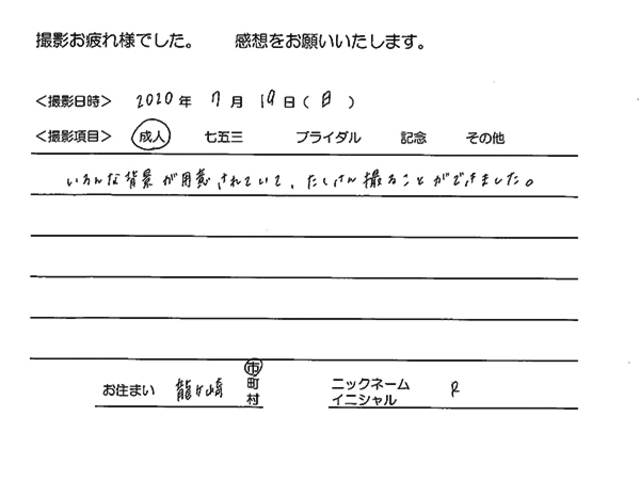 撮影お疲れ様でした。 感想をお願いいたします。
<撮影日時> 2020年 7月 19日(日)
<撮影項目> 成人 七五三 ブライダル 記念 その他
いろんな背景が用意されていて、たくさん撮ることができました。
お住まい 龍ヶ崎 市 町 村 ニックネーム イニシャル R